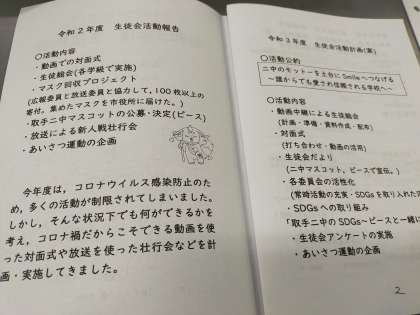 令和２年度　生徒会活動報告
○活動内容
・動画での対面式
・生徒総会(各学級で実施)
・マスク回収プロジェクト
(広報委員と放送委員と協力して，100枚以上の
寄付。集めたマスクを市役所に届けた。)
・取手二中マスコットの公募・決定(ピース)
・放送による新人戦壮行会
・あいさつ運動の企画
今年度は，コロナウイルス感染防止のた
め，多くの活動が制限されてしまいました。
しかし，そんな状況下でも何ができるかを
考え，コロナ禍だからこそできる動画を使
った対面式や放送を使った壮行会などを計
画・実施してきました。
令和３年度　生徒会活動計画(案)
○活動公約
二中のモットーを土台に Smile へつなげる
～誰からでも愛され信頼される学校へ～
○活動内容
・動画中継による生徒総会
(計画・準備・資料作成・配布)
・対面式
(打ち合わせ・動画の活用)
・生徒会だより
(二中マスコット，ピースで宣伝。)
・各委員会の活性化
(常時活動の充実・SDGsを取り入れた活
・SDGsへの取り組み
「取手二中のSDGs～ピースと一緒に
・生徒会アンケートの実施
・あいさつ運動の企画
2